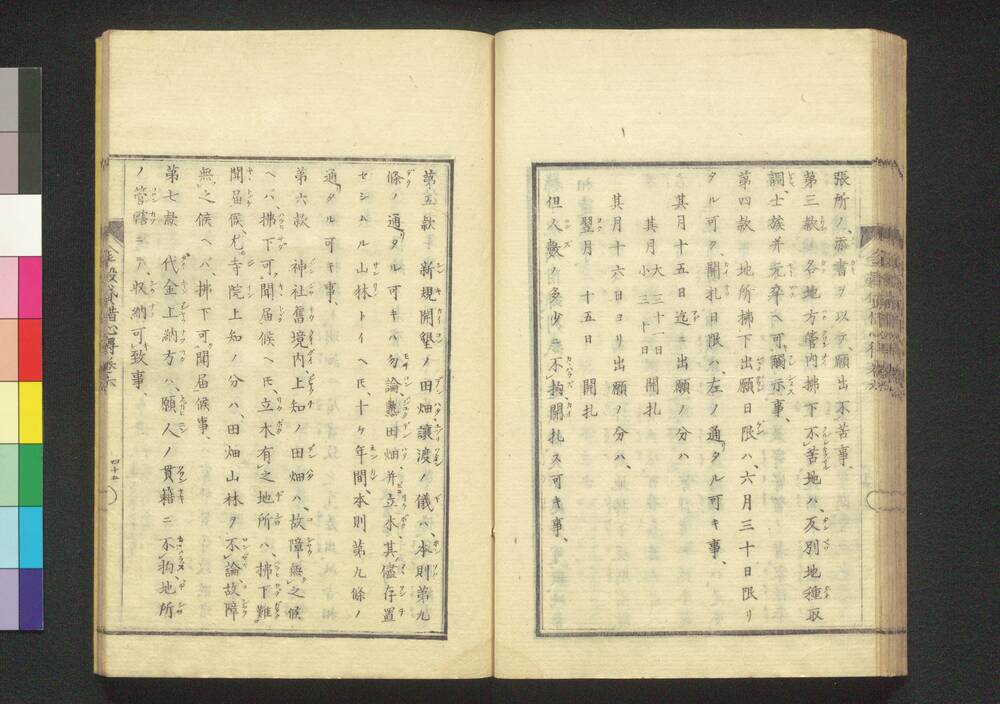 張所ノ、添書ヲ以テ、願出不苦事、
第三款　各地方管內拂下不苦地ハ、反別地種取
調、士族并元卒ヘ可爾示事、
第四款　地所拂下出願日限ハ、六月三十日限リ
タル可ク、開札日限ハ、左ノ通タル可キ事、
其月十五日迄ニ出願ノ分ハ
其月大三十一日小三十日　開札
其月十六日ヨリ出願ノ分ハ、
翌月十五日　開札
但人數ノ多少ニ不拘開札ス可キ事、
第五款　新規開墾ノ田畑讓渡ノ儀ハ、本則第九
條ノ通タル可キハ勿論、熟田畑并立木、其儘存置
セシムル山林トイヘ𪜈、十ケ年間、本則第九條ノ
通タル可キ事、
第六款　神社舊境內上知ノ田畑ハ、故障無之候
ヘバ、拂下可聞届候ヘ𪜈、立木有之地所ハ、拂下難
聞届候、尤寺院上知ノ分ハ、田畑山林ヲ不論、故障
無之候ヘバ、拂下可聞届候事、
第七款　代金上納方ハ、願人ノ貫籍ニ不拘、地所
ノ管轄ニテ、收納可致事、
四十五